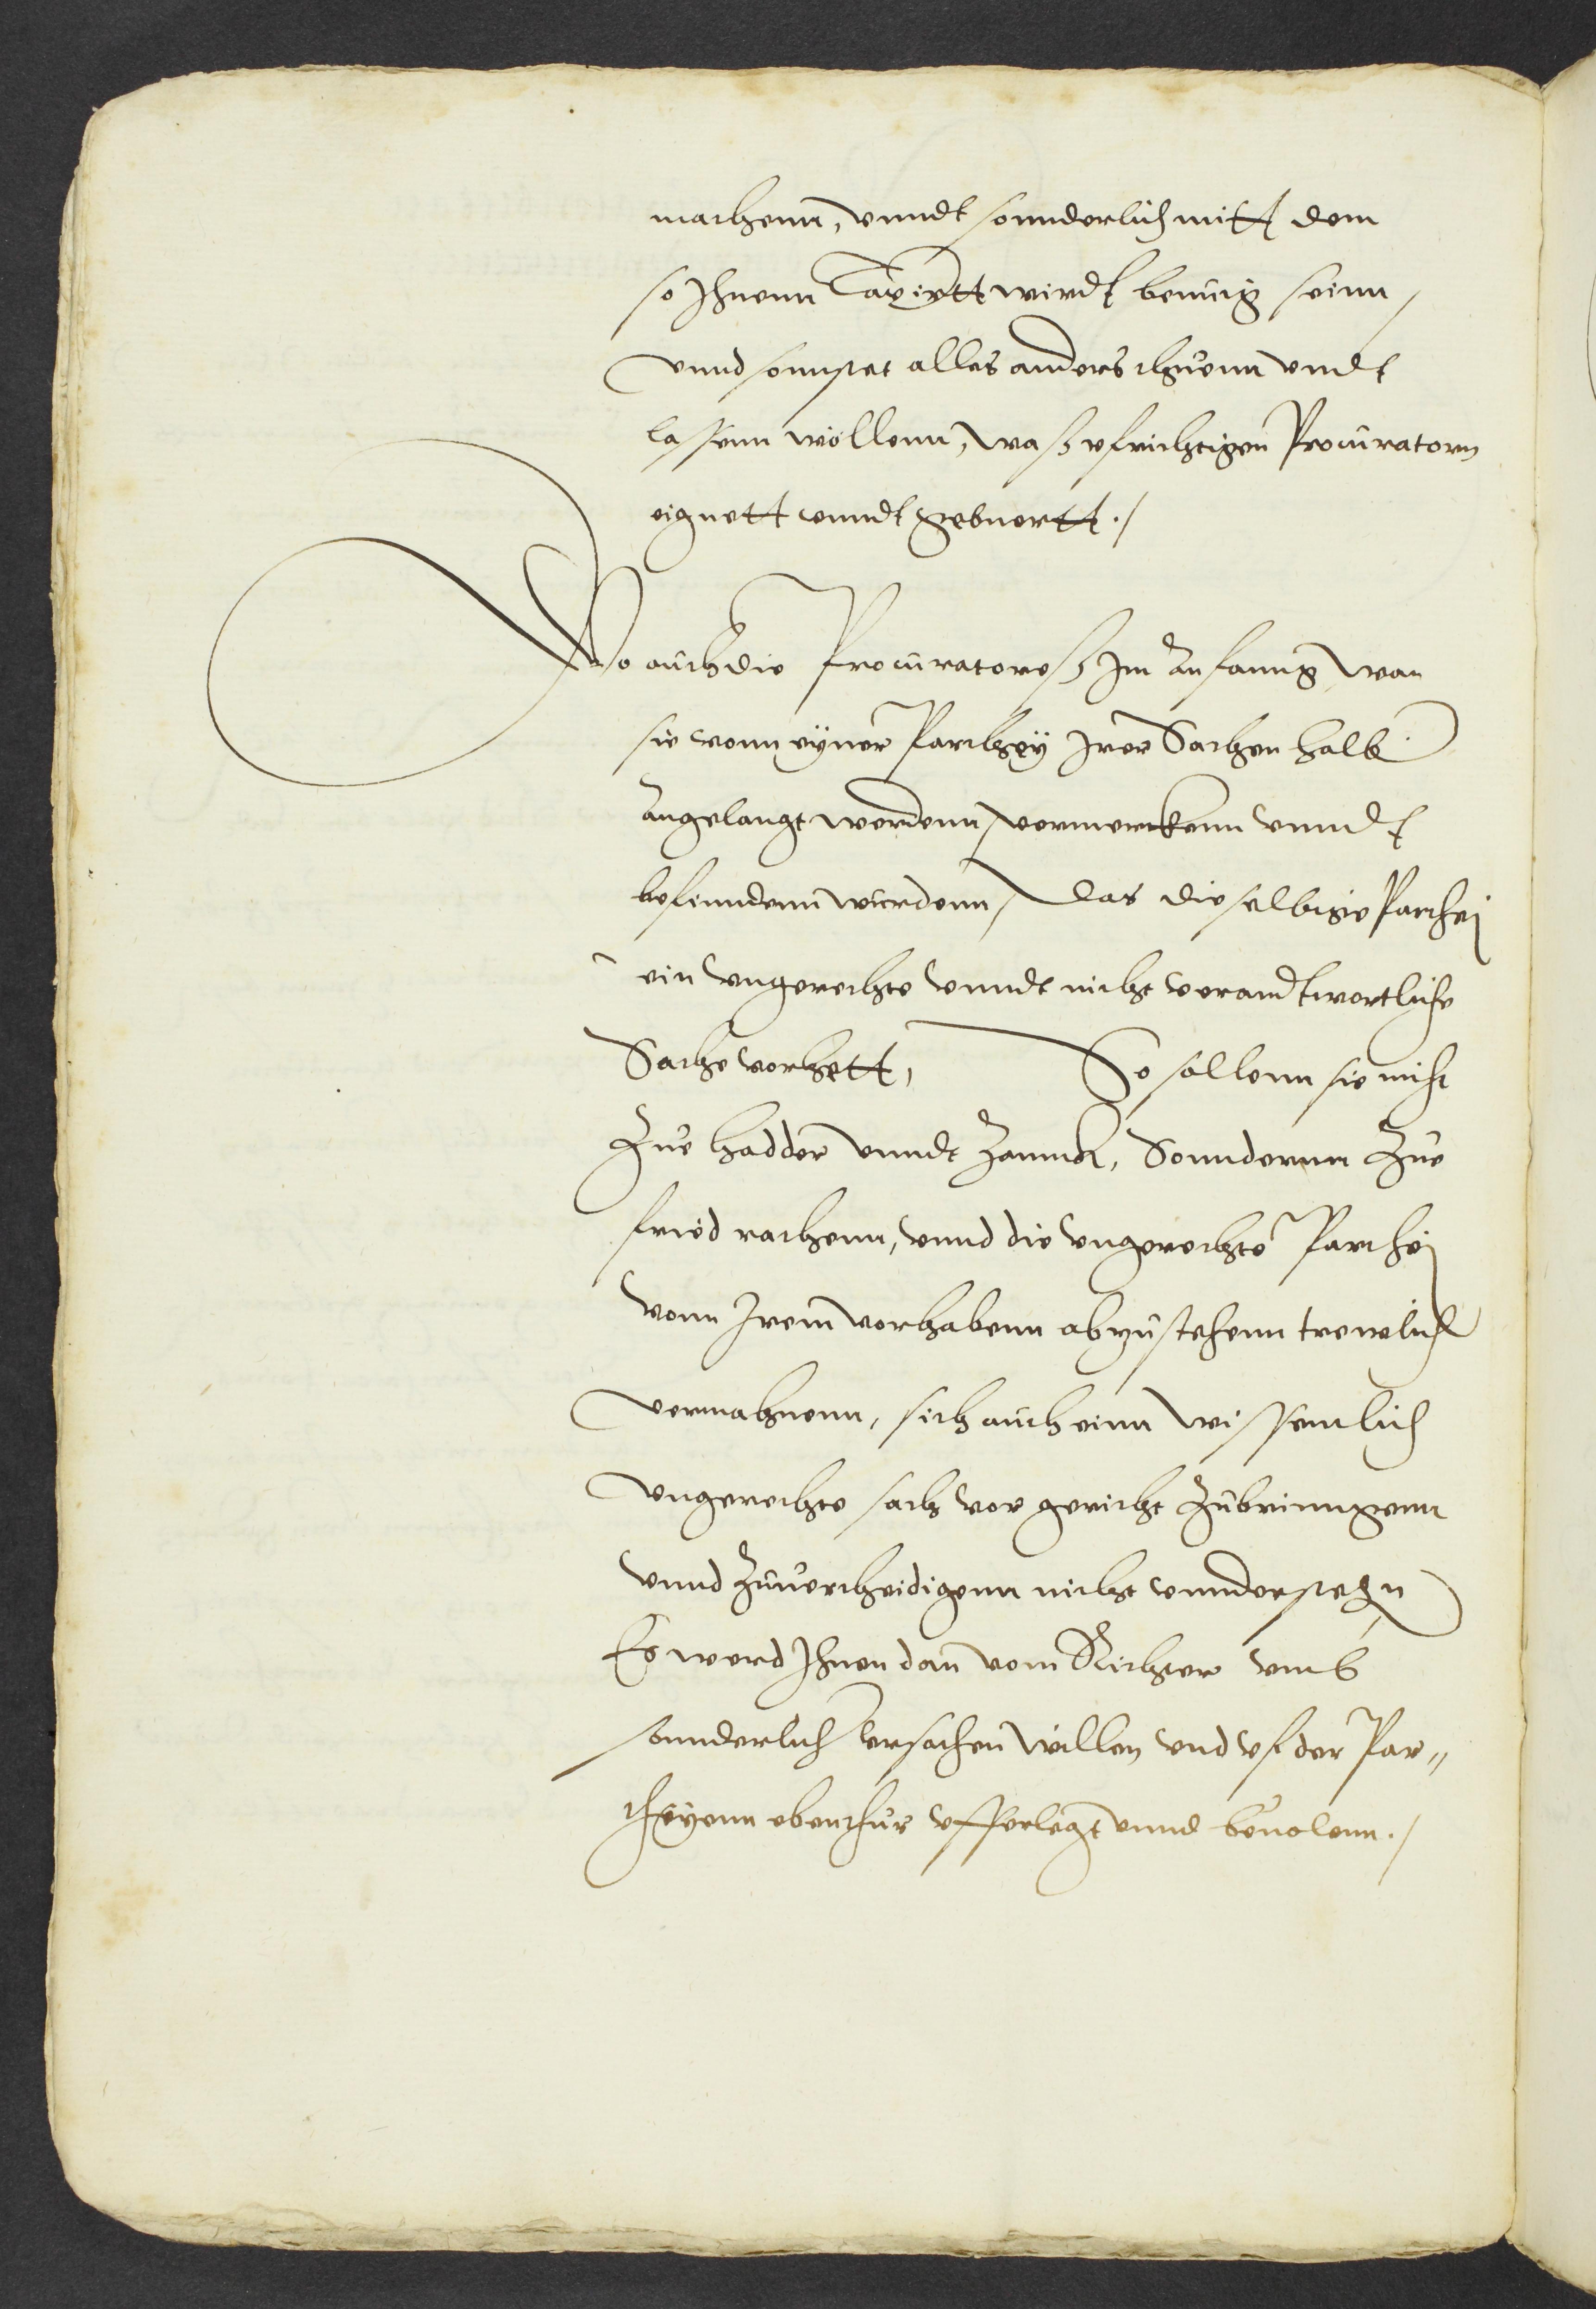 machenn, vnndt sonnderlich mitt dem
so Ihnenn Taxirtt wirdt benuig seinn,
vnnd sonnstet alles anders thuenn vndt
lassenn wöllenn, waß vfrichtigen Procuratorn
eignett vnndt geburertt./
Wo auch die Procuratoreß Im Anfanng, wan
sie vonn eÿner Partheÿ Irer Sachen halb
Angelangt werdenn, vermerckenn vnndt
befinndenn wurdenn, das dieselbige Parthej
ein vngerechte vnndt nicht verandtwortliche
Sache vorhett, So sollenn sie nicht
Zue hadder vnndt Zannck, Sonndernn Zue
fried rathenn, vnnd die vngerechte Parthej
vonn Irem vorhabenn abzustehenn trewlich
vermahnenn, sich auch einn wissentlich
vngerechte sach vor gericht Zubrinngenn
vnnd Zuuertheidigenn nicht vnnderstehn
Es werd Ihnen dan vom Richter vmb
sonnderlich vrsachen willen vnd vf der Par„
theÿenn ebenthur vfferlegt vnnd beuolenn./